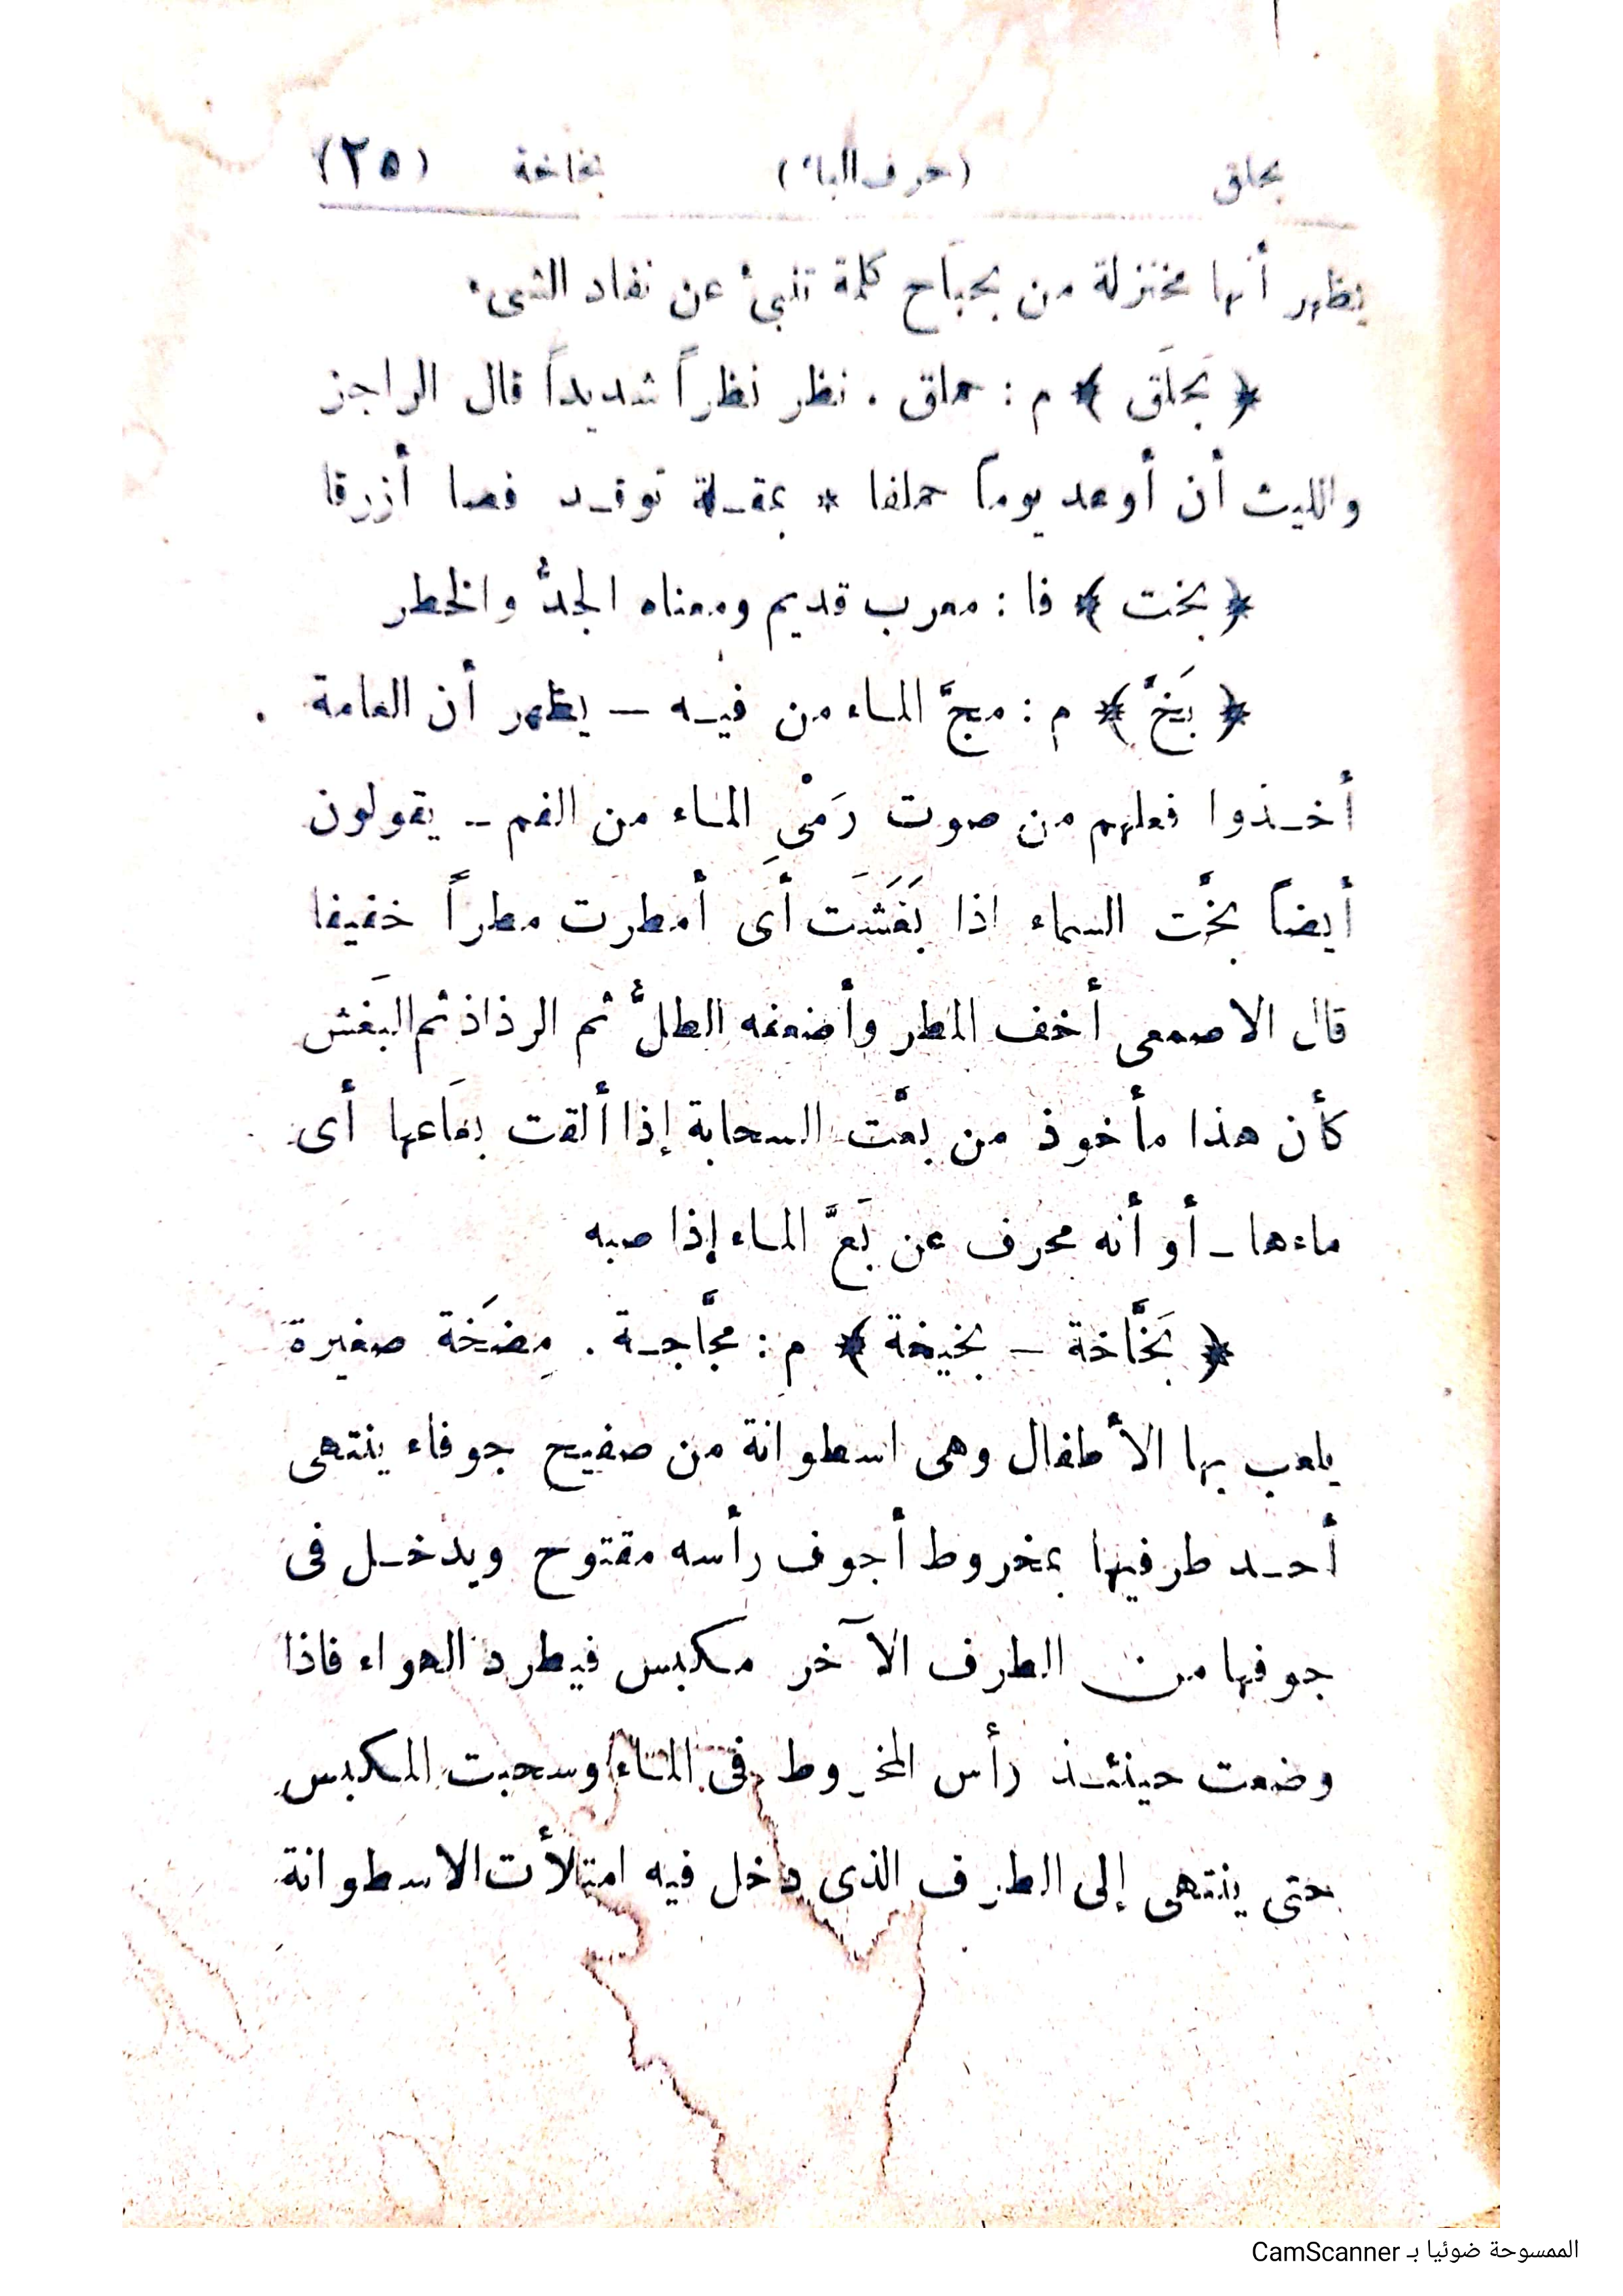 بحلق (حرف الباء) بخاخة (٢٥)
يظهر أنها مختزلة من بحبَاح كلمة تنبئ عن نفاد الشىء
﴿ بَحلَق ﴾ م : حملق . نظر نظراً شديداً قال الراجز
والليث أن أوعد يوماً حملقا * بمقـلة توقـد فصا أزرقا
﴿ بخت ﴾ فا : معرب قديم ومعناه الجدُّ والخطر
﴿ بَخَّ ﴾ م : مجَّ المـاء من فيـه — يظهر أن العامة
أخـذوا فعلهم من صوت رَمْىِ المـاء من الفم — يقولون
أيضاً بخَّت السماء اذا بَغَشَت أَى أمطرت مطراً خفيفا
قال الاصمعى أخف المطر وأضعفه الطلُّ ثم الرذاذ ثم البَغش
كأن هذا مأخوذ من بعَّت السحابة إذا ألقت بعَاعها أى
ماءها — أو أنه محرف عن بَعَّ المـاء إذا صبه
﴿ بَخَّاخة — بخيخة ﴾ م : مجَّاجـة . مِضَخة صغيرة
يلعب بها الأطفال وهى اسطوانة من صفيح جوفاء ينتهى
أحـد طرفيها بمخروط أجوف رأسه مفتوح ويدخـل فى
جوفها من الطرف الآخر مكبس فيطرد الهواء فاذا
وضعت حينئـذ رأس المخروط فى المـاء وسحبت المكبس
حتى ينتهى إلى الطرف الذى دخل فيه امتلأت الاسطوانة
الممسوحة ضوئيا بـ CamScanner